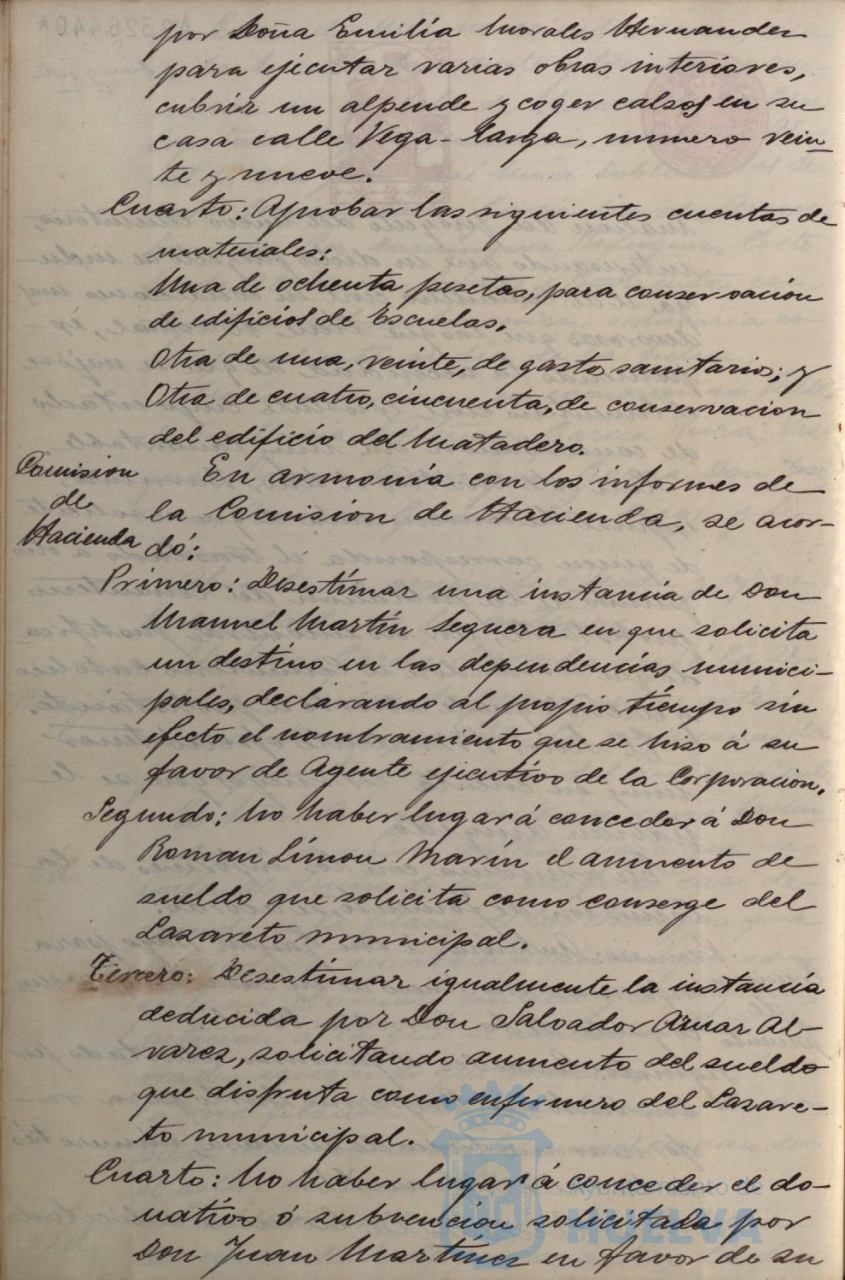 por Doña Emilia Morales Hernandez
para ejecutar varias obras interiores,
cubrir un alpende y coger calsos en su
casa calle Vega-larga, numero vein-
te y nueve.
Cuarto: Aprobar las siguientes cuentas de
materiales:
Una de ochenta pesetas, para conservación
de edificios de Escuelas.
Otra de una, veinte, de gasto sanitario; y
Otra de cuatro, cincuenta, de conservacion
del edificio del Matadero.
Comision
de
Hacienda
En armonía con los informes de
la Comisión de Hacienda, se acor-
dó:
Primero: Desestimar una instancia de Don
Manuel Martín Seguera en que solicita
un destino en las dependencias munici-
pales, declarando al propio tiempo sin
efecto el nombramiento que se hiso á su
favor de Agente ejecutivo de la Corporacion.
Segundo: No haber lugar á conceder á Don
Roman Limon Marín el aumento de
sueldo que solicita como conserge del
Lazareto municipal.
Tercero: Desestimar igualmente la instancia
deducida por Don Salvador Aznar Al-
varez, solicitando aumento del sueldo
que disfruta como enfermero del Lazare-
to municipal.
Cuarto: No haber lugar á conceder el do-
nativo ó subvencion solicitada por
Don Juan Martínez en favor de su
Ayuntamiento de
HUELVA